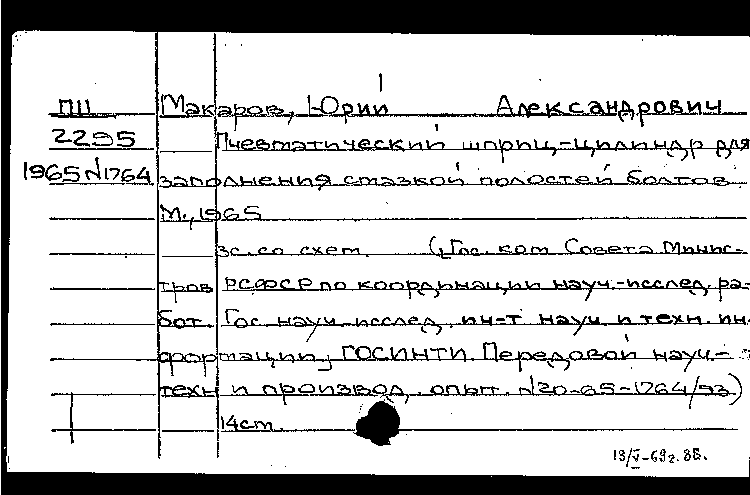 П11 Макаров, Юрий Александрович
2295 Пневматический шприц-цилиндр для
1965 №1764 заполнения смазкой полостей болтов.
М., 1965
3с. со схем. (Гос. ком. Совета Минис-
тров РСФСР по координации науч.-исслед. ра-
бот. Гос. науч.-исслед. ин-т науч. и техн. ин-
формации, ГОСИНТИ. Передовой науч.-
техн и производ. опыт. №20-65-1764/93)
14см.
19/V-69г.